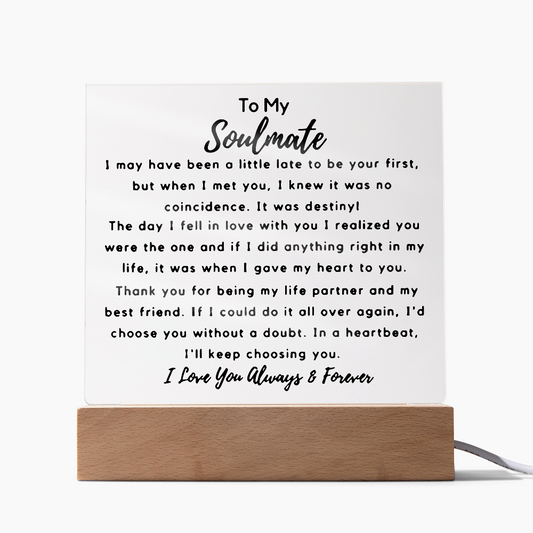 To My
Soulmate
I may have been a little late to be your first,
but when I met you, I knew it was no
coincidence. It was destiny!
The day I fell in love with you I realized you
were the one and if I did anything right in my
life, it was when I gave my heart to you.
Thank you for being my life partner and my
best friend. If I could do it all over again, I'd
choose you without a doubt. In a heartbeat,
I'll keep choosing you.
I Love You Always & Forever